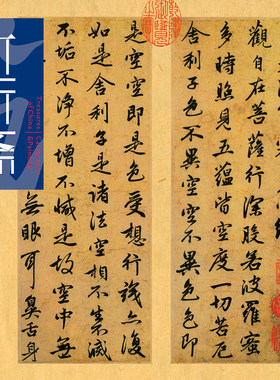 觀自在菩薩行深般若波羅蜜
多時照見五蘊皆空度一切苦厄
舍利子色不異空空不異色色即
是空空即是色受想行識亦復
如是舍利子是諸法空相不生不滅
不垢不淨不增不減是故空中無
無眼耳鼻舌身
Treasures
of China